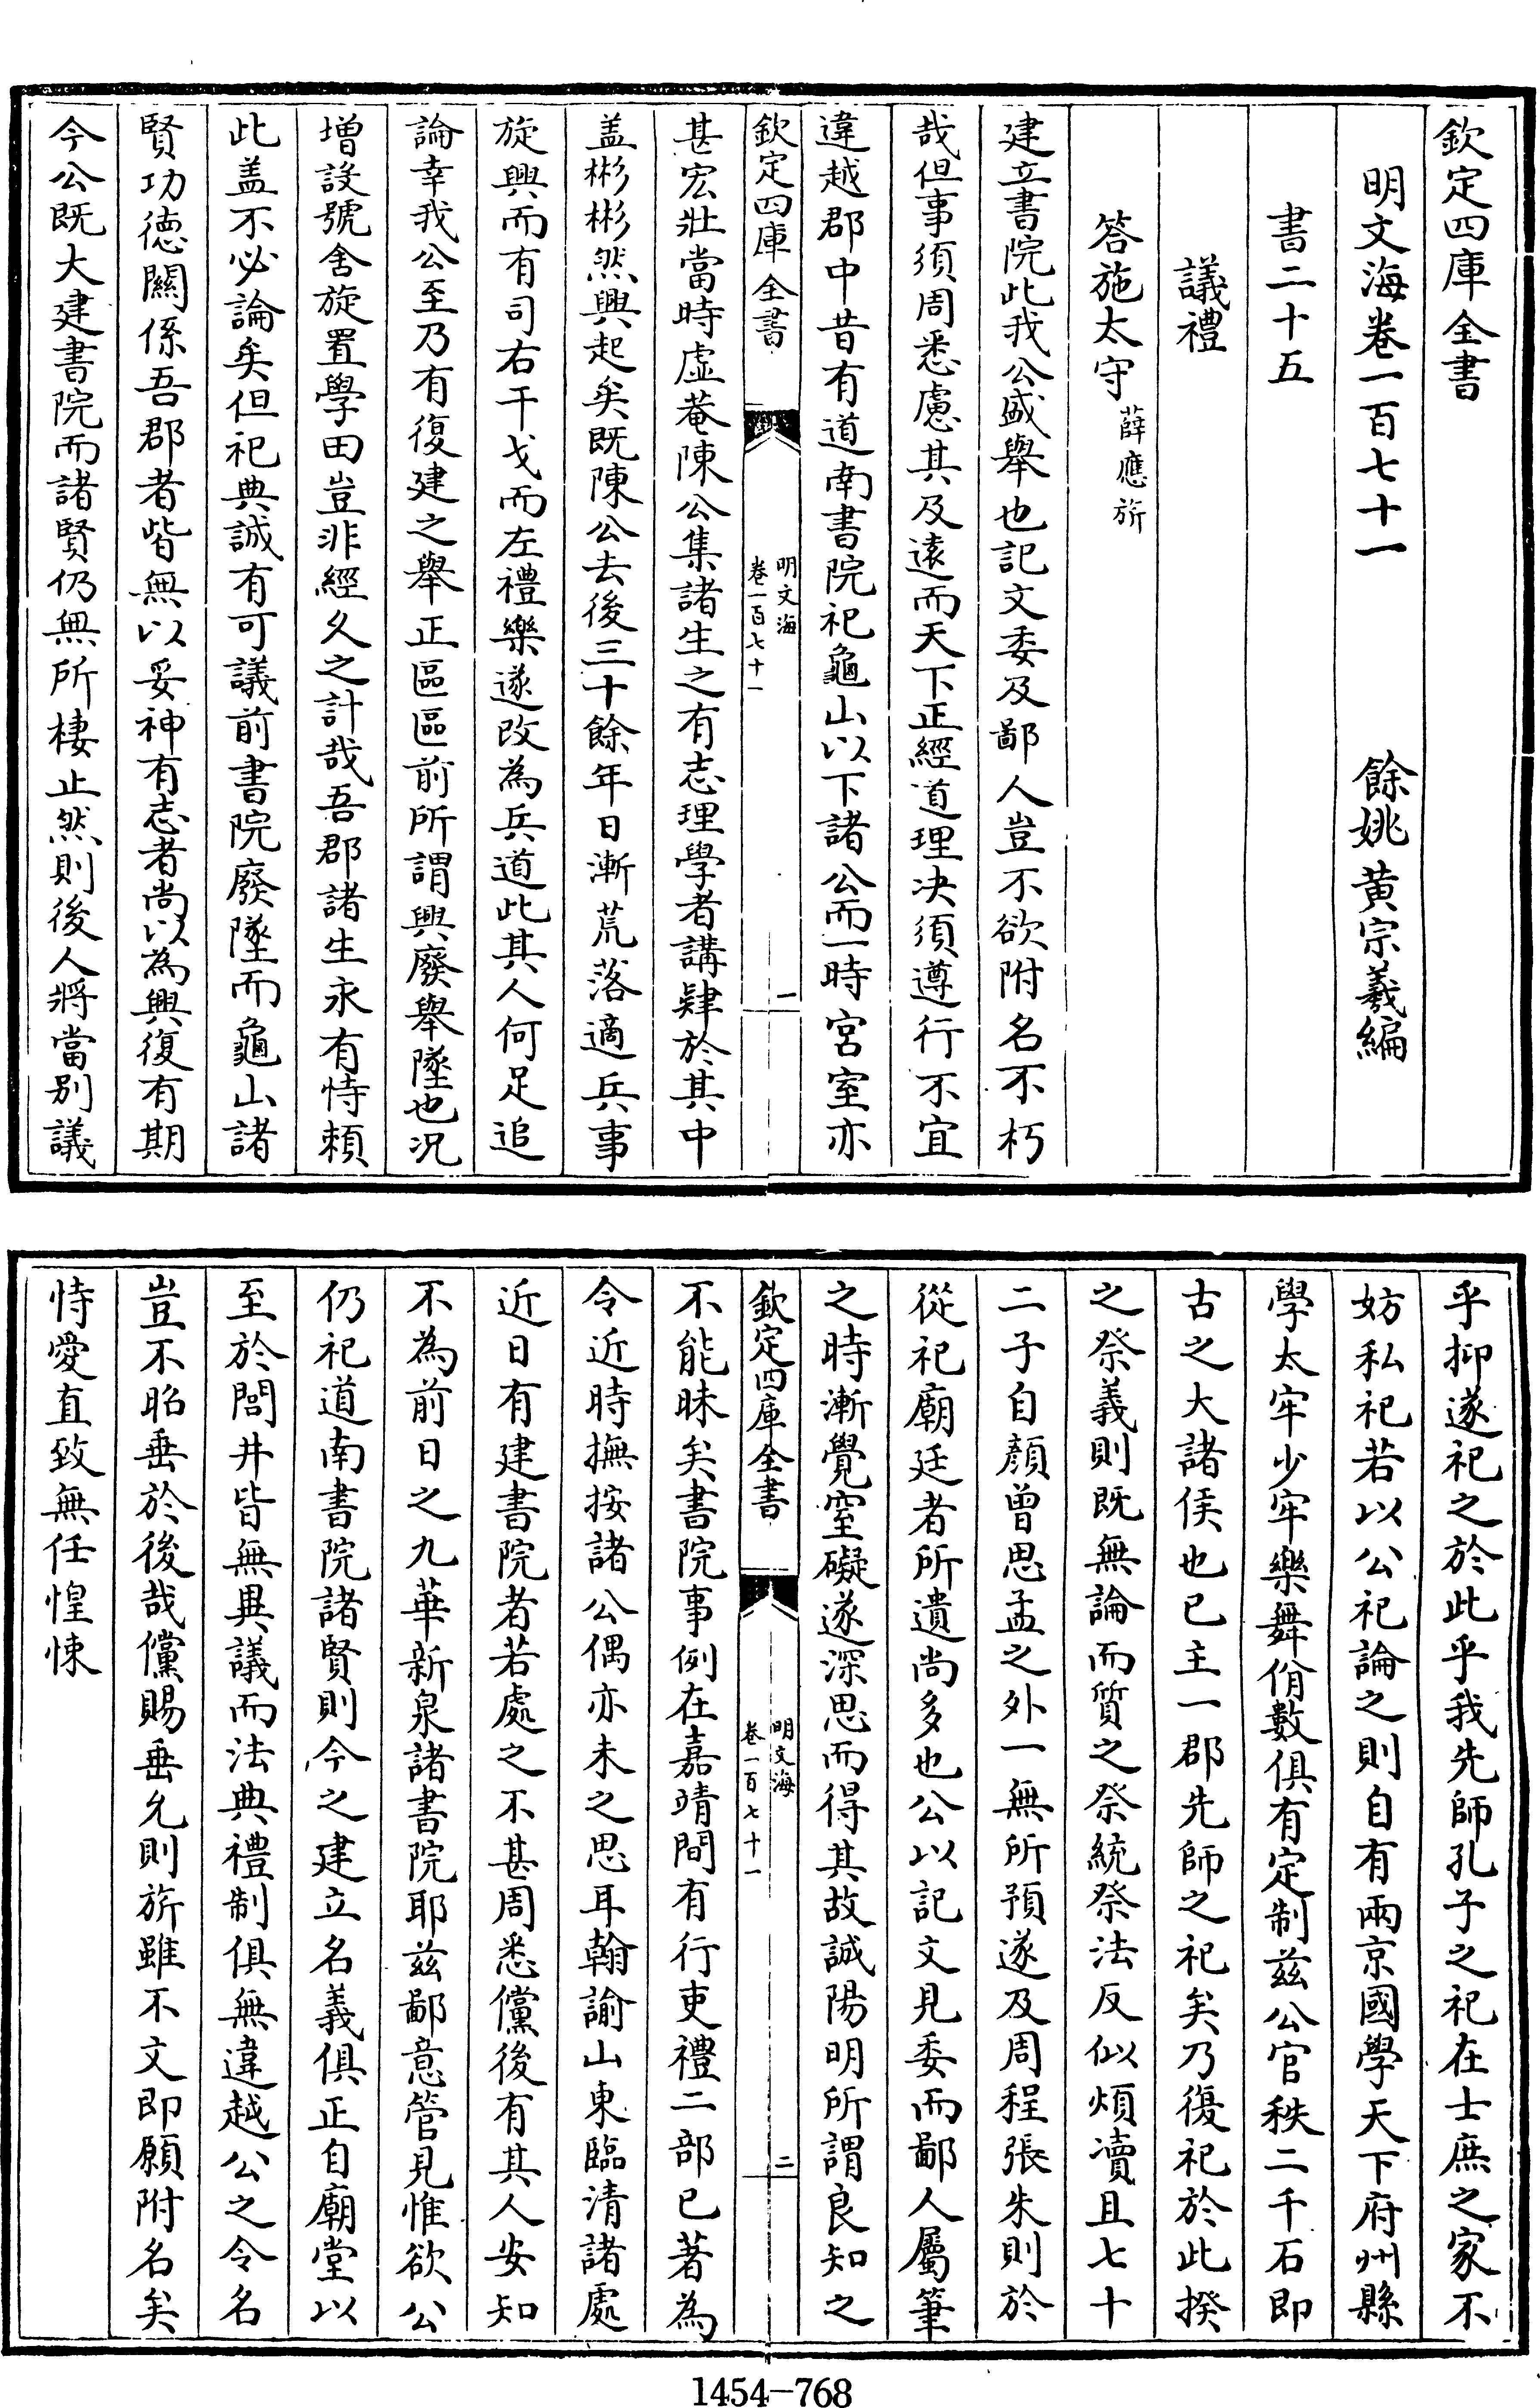 欽定四庫全書
明文海卷一百七十一 餘姚黄宗羲編
書二十五
議禮
答施太守 薛應旂
建立書院此我公盛舉也記文委及鄙人豈不欲附名不朽
哉但事須周悉慮其及逺而天下正經道理决須遵行不宜
違越郡中昔有道南書院祀龜山以下諸公而一時宮室亦
欽定四庫全書
明文海
卷一百七十一
一
甚宏壯當時虚菴陳公集諸生之有志理學者講肄於其中
盖彬彬然興起矣既陳公去後三十餘年日漸荒落適兵事
旋興而有司右干戈而左禮樂遂改為兵道此其人何足追
論幸我公至乃有復建之舉正區區前所謂興廢舉墜也况
增設號舍旋置學田豈非經久之計哉吾郡諸生永有恃賴
此盖不必論矣但祀典誠有可議前書院廢墜而龜山諸
賢功徳闗係吾郡者皆無以妥神有志者尚以為興復有期
今公既大建書院而諸賢仍無所棲止然則後人將當别議
乎抑遂祀之於此乎我先師孔子之祀在士庶之家不
妨私祀若以公祀論之則自有兩京國學天下府州縣
學太牢少牢樂舞佾數俱有定制兹公官秩二千石即
古之大諸侯也已主一郡先師之祀矣乃復祀於此揆
之祭義則既無論而質之祭統祭法反似煩瀆且七十
二子自顔曾思孟之外一無所預遂及周程張朱則於
從祀廟廷者所遺尚多也公以記文見委而鄙人屬筆
之時漸覺窒礙遂深思而得其故誠陽明所謂良知之
欽定四庫全書
明文海
卷一百七十一
二
不能昧矣書院事例在嘉靖間有行吏禮二部已著為
令近時撫按諸公偶亦未之思耳翰諭山東臨清諸處
近日有建書院者若處之不甚周悉儻後有其人安知
不為前日之九華新泉諸書院耶兹鄙意管見惟欲公
仍祀道南書院諸賢則今之建立名義俱正自廟堂以
至於閭井皆無異議而法典禮制俱無違越公之令名
豈不昭垂於後哉儻賜垂允則旂雖不文即願附名矣
恃愛直致無任惶悚
1454-768